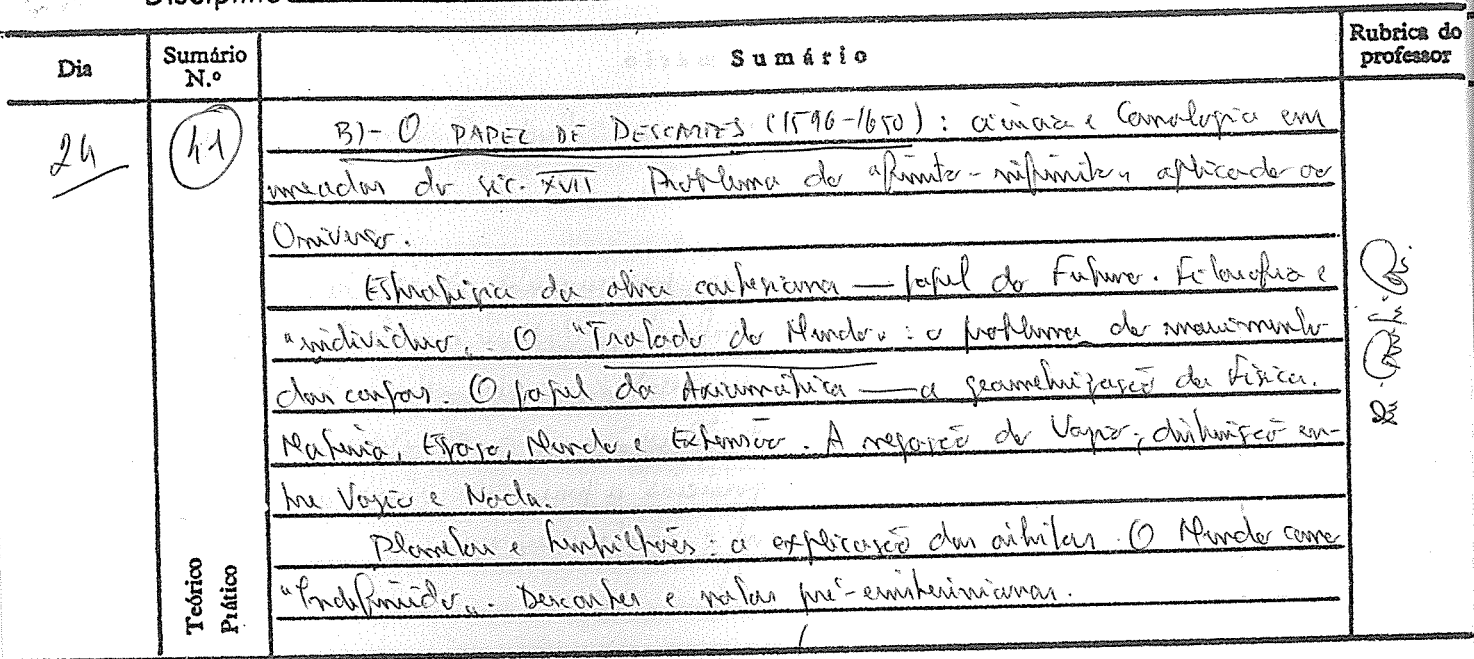 Disciplina
Dia
Sumário N.º
Sumário
Rubrica do professor
24
41
B)- O PAPEL DE DESCARTES (1596-1650): ciência e Cosmologia em
meados do séc. XVII Problema do "finito-infinito" aplicado ao
Universo.
Estratégia da obra cartesiana — papel do Futuro. Filosofia e
"indivíduo". O "Tratado do Mundo": o problema do movimento
dos corpos. O papel da Axiomática — a geometrização da Física.
Matéria, Espaço, Mundo e Extensão. A negação do Vazio; distinção en-
tre Vazio e Nada.
Planetas e turbilhões: a explicação das órbitas. O Mundo como
"Indefinido". Descartes e notas pré-einsteinianas.
Teórico
Prático